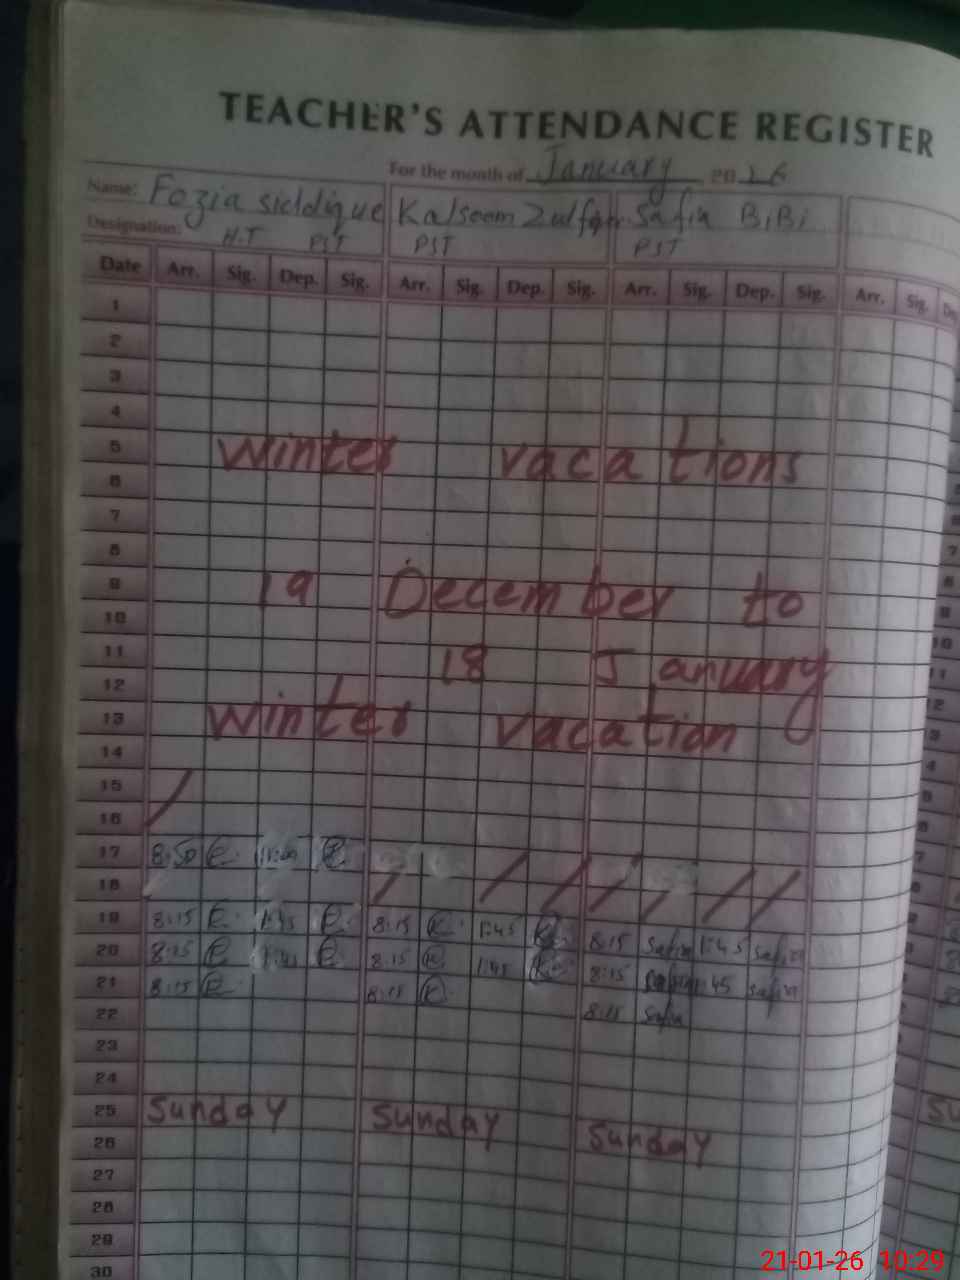 TEACHER'S ATTENDANCE REGISTER
For the month of January 2026
Name: Fozia siddique Kalsoom Zulfqar Safia BiBi
Designation: H.T PST PST PST
Date Arr. Sig. Dep. Sig. Arr. Sig. Dep. Sig. Arr. Sig. Dep. Sig. Arr. Sig.
1
2
3
4
5 winter vacations
6
7
8
9 19 December to
10
11 18 January
12
13 winter vacation
14
15
16
17 8:50
18
19 8:15 1:45 8:15 1:45 8:15 Safia 1:45 safia
20 8:15 1:45 8:15 1:45 8:15 1:45 safia
21 8:15 8:15 8:15 Safia
22
23
24
25 Sunday Sunday Sunday
26
27
28
29
30
21-01-26 10:29